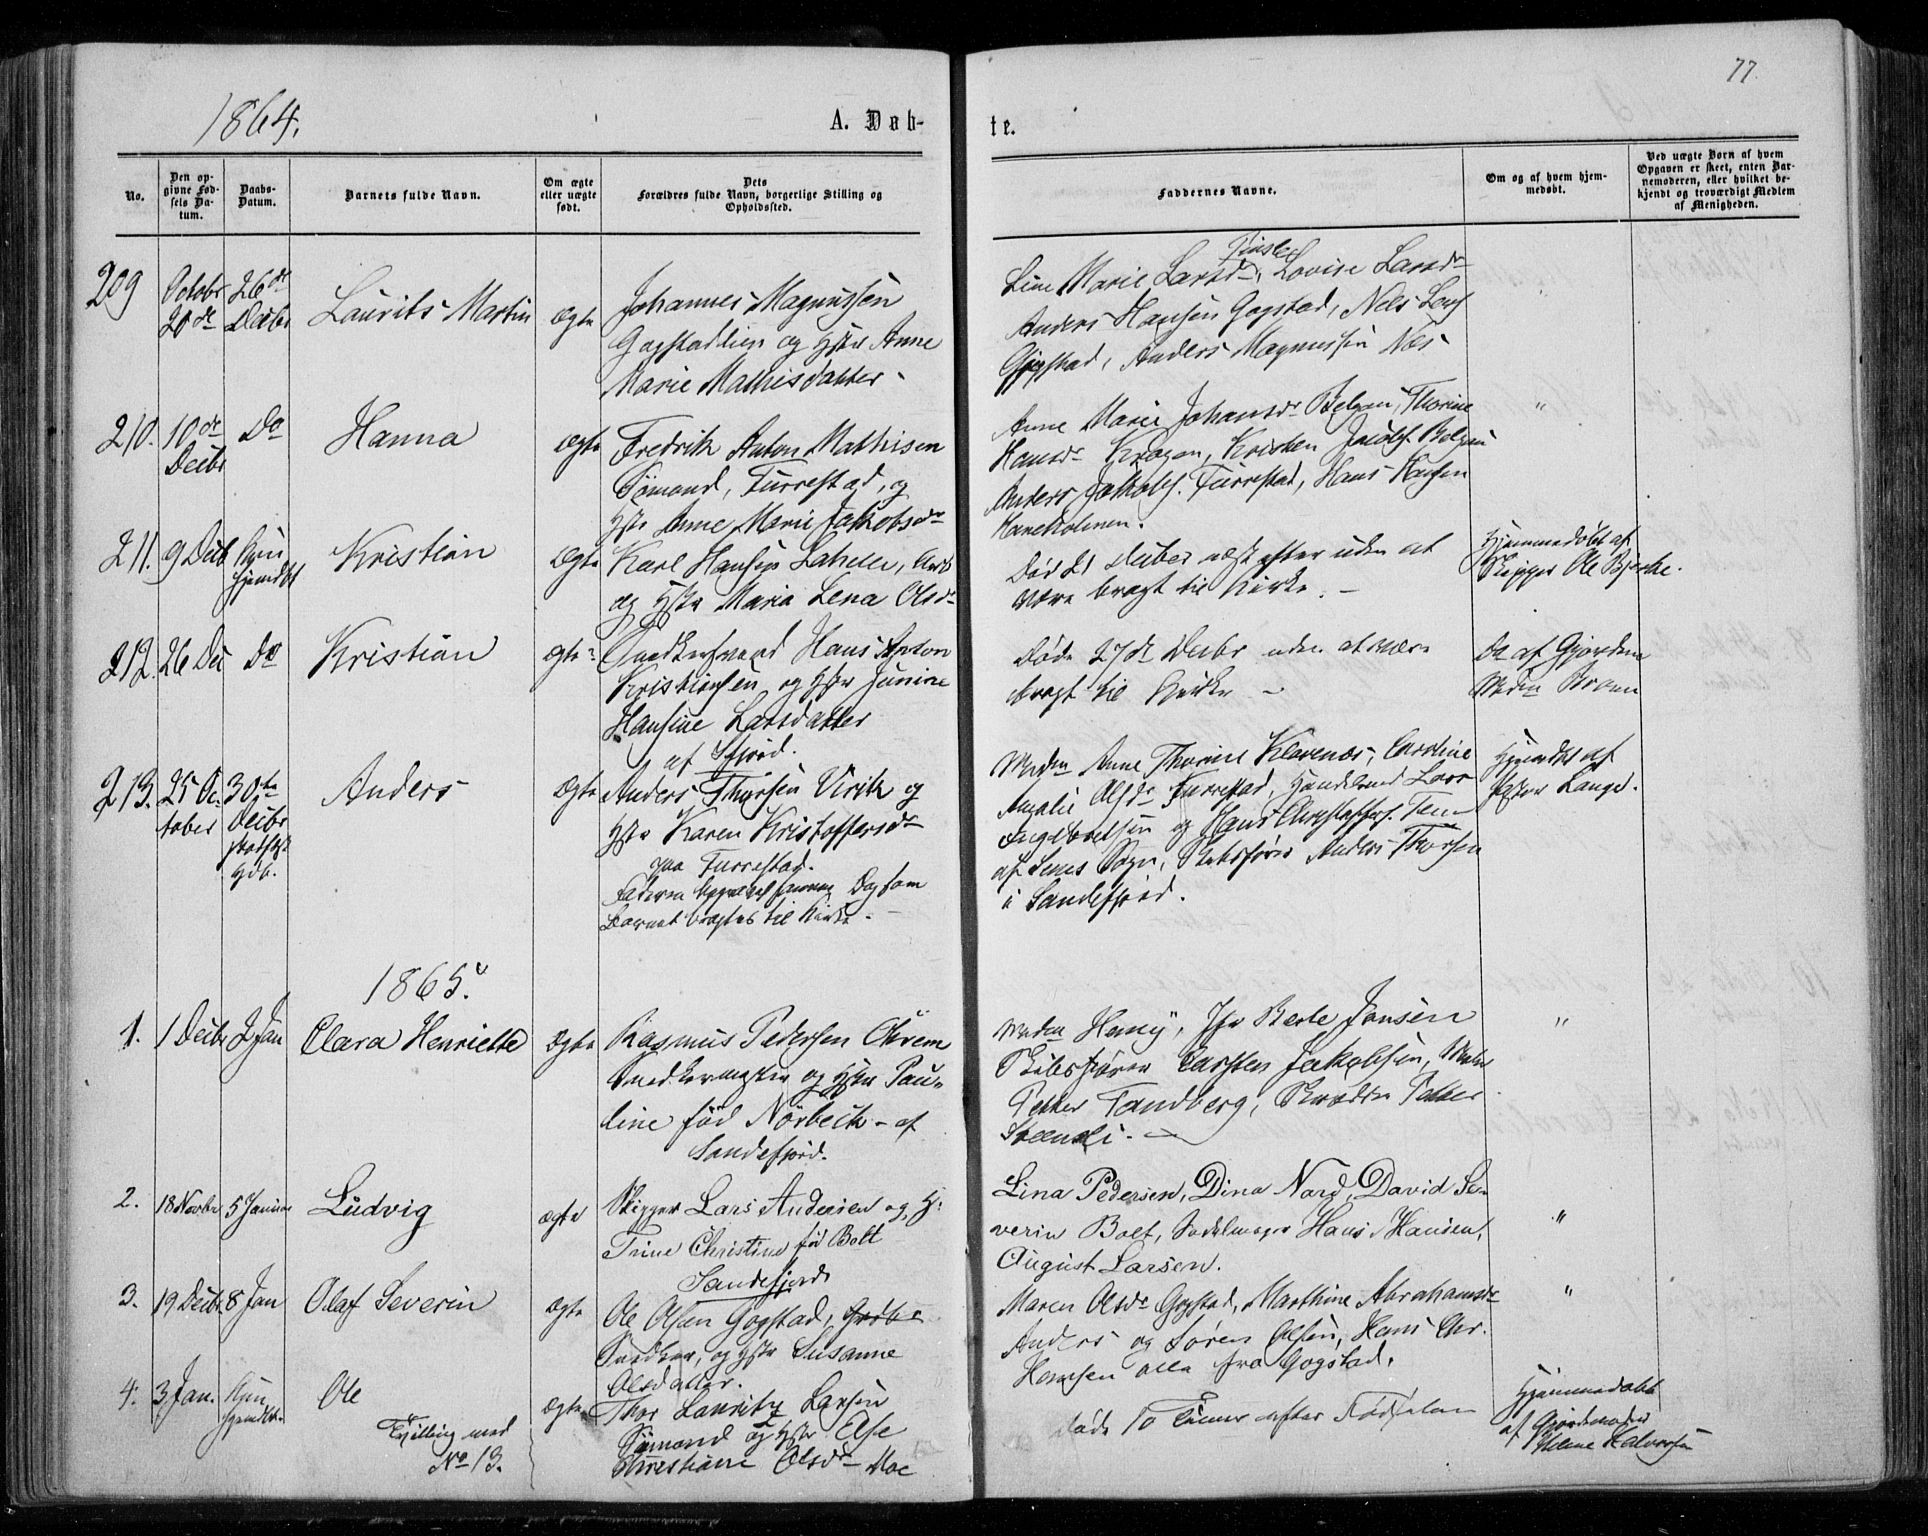 77.
1864.
A. Døb-
te.
No.
Den op-
givne Fød-
sels Da-
tum.
Daabs-
Datum.
Barnets fulde Navn.
Om ægte
eller uægte
født.
Dets
Forældres fulde Navn, borgerlige Stilling og
Opholdssted.
Faddernes Navne.
Om og af hvem hjem-
medøbt.
Ved uægte Børn af hvem
Opgaven er skeet, enten Bar-
nemoderen, eller hvilket be-
kjendt og troværdigt Medlem
af Menigheden.
209
Octobr
20de
26de
Decbr
Laurits Martin
ægte
Johannes Magnussen
Gogstadlien og Hstr Anne
Marie Mathisdatter
Line Marie Larsdr, Lovise Larsdr
Anders Hansen Gogstad, Nels Lars
Gogstad, Anders Magnussen Næs
"
210.
10de
Decbr
Do
Hanna
ægte
Fredrik Anton Mathisen
Sømand, Furrestad, og
Hstr Anne Marie Jakobsdr
Anne Marie Johansdr Belgau, Thorine
Hansdr Kragen, Kristen Jacobs. Belgau
Anders Jakobs. Furrestad, Hans Hansen
"
211.
9 Decb
Kun
hjemdbt
Kristian
ægte
Karl Hansen Lahelle, Arb
og Hstr Maria Lena Olsdr
Død 21 Decber næst efter uden at
være bragt til Kirke. -
Hjemmedøbt af
Skipper Ole Bjerke.
212.
26 Dec
Do
Kristian
ægte
Snedkersvend Hans Anton
Kristiansen og Hstr Junine
Hansine Larsdatter
af Sfjord.
Døde 27de Decbr uden at være
bragt til Kirke -
Do af Gjordem
Madm Braaen
213.
25 Oc-
tober
30te
Decbr
Anders
ægte
Anders Thorsen Virik og
Hstr Karen Kristoffersdr
paa Furrestad.
Faderen begravet samme Dag som
Barnet bragtes til Kirke. -
Madm Anne Thorine Klavenæs, Caroline
Amalie Olsdr Furrestad, Handelsmd Lars
Ingebretsen og Hans Christoffers. Tem
af Sems Sogn, Skibsfører Anders Thorsen
i Sandefjord.
Hjemdbt af
Lange.
1865.
1.
1 Decbr
2 Jan
Clara Henriette
ægte
Rasmus Pedersen Ohrem
Snedkermester og Hstr Pau-
line fød Nørbech - af
Sandefjord.
Madm Henry, Jfr Berte Jansen
Skibsfører Carsten Jakobsen, Maler
Petter Tandberg, Skrædder Petter
"
2.
18 Novbr
5 Januar
Ludvig
ægte
Skipper Lars Andersen og H:
Trine Christine fød Bolt
Sandefjord
Lina Pedersen, Dina Nord, David Se-
verin Bolt, Sadelmager Hans Hansen,
August Larsen.
"
3.
19 Decbr
8 Jan
Olaf Severin
ægte
Ole Olsen Gogstad,
Snedker, og Hstr Susanne
Olsdatter.
Maren Olsdr Gogstad, Marthine Abrahamsdr
Anders og Søren Olsen, Hans Chr.
Hansen alle fra Gogstad.
"
4.
3 Jan.
Kun
hjemdbt.
Ole
Tvilling med
No 13.
ægte
Thor Lauritz Larsen
Sømand og Hstr Else
Christiane Olsdr Moe
Døde 10 Timer efter Fødselen
Hjemmedøbt
af Gjordemoder
Helene Halvorsen